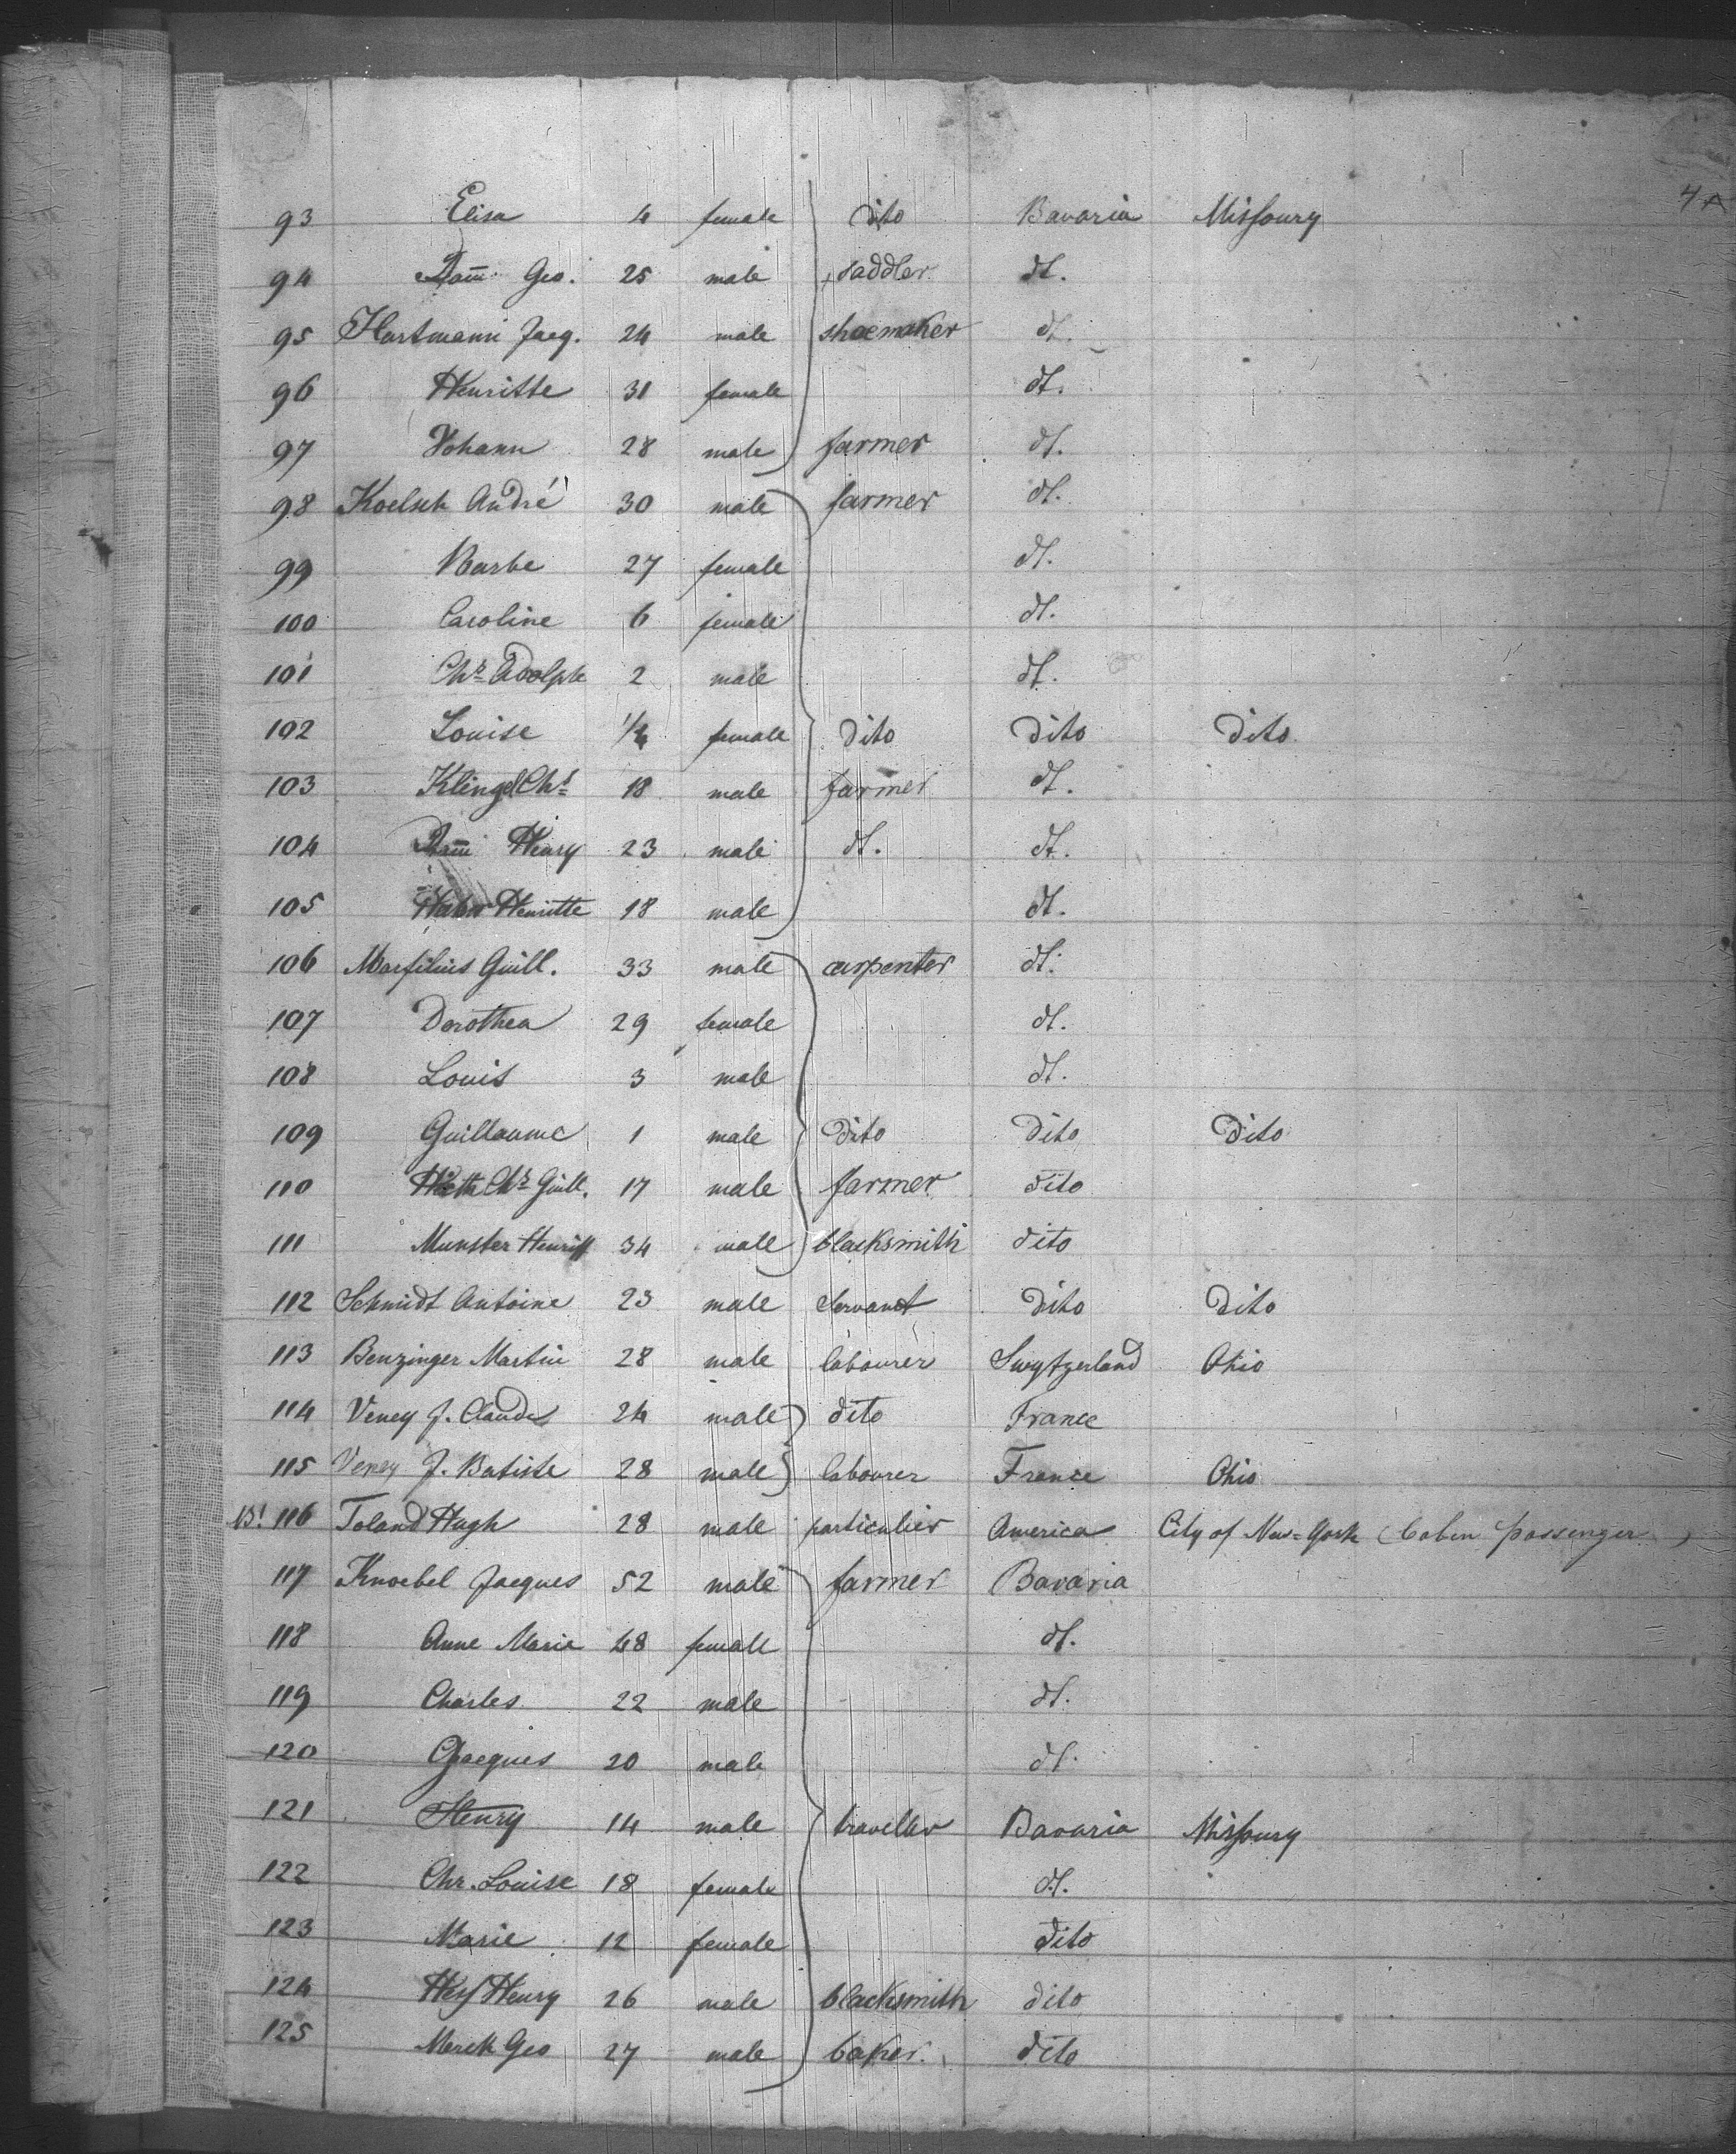 4
93 Elisa 4 female dito Bavaria Missoury
94 Dam̅ Geo. 25 male saddler dt.
95 Hartmann Jacq. 24 male shoemaker dt.
96 Henritte 31 female dt.
97 Johann 28 male farmer dt.
98 Koelsch André 30 male farmer dt.
99 Barbe 27 female dt.
100 Caroline 6 female dt.
101 Chr. Adolph 2 male dt.
102 Louise 1/4 female dito dito dito
103 Klingel Chr. 18 male farmer dt.
104 Dam̅ Henry 23 male dt. dt.
105 Henritte 18 male dt.
106 Marfilius Guill. 33 male carpenter dt.
107 Dorothea 29 female dt.
108 Louis 3 male dt.
109 Guillaume 1 male dito dito dito
110 Chr. Guill. 17 male farmer dito
111 Munster 34 male blacksmith dito
112 Schmidt Antoine 23 male servant dito dito
113 Benzinger Martin 28 male labourer Swytzerland Ohio
114 Veney J. Claude 24 male dito France
115 Veney J. Batiste 28 male labourer France Ohio
116 Toland Hugh 28 male particulier America City of New=York (Cabin passenger)
117 Knoebel Jacques 52 male farmer Bavaria
118 Anne Marie 48 female dt.
119 Charles 22 male dt.
120 Jacques 20 male dt.
121 Henry 14 male traveller Bavaria Missoury
122 Chr. Louise 18 female dt.
123 Marie 12 female dito
124 Hess Henry 26 male blacksmith dito
125 Merck Geo 27 male baker. dito